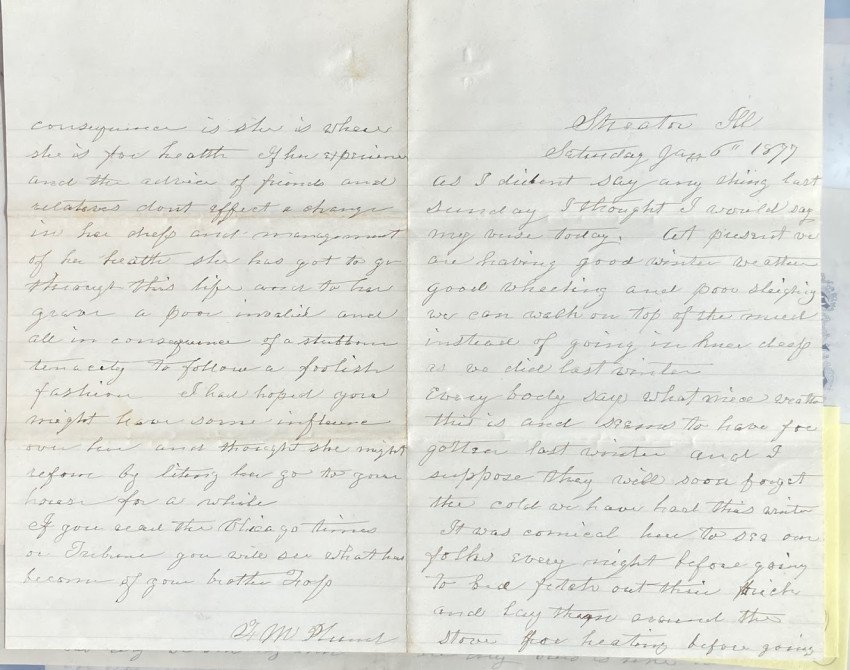 Streator Ill
Saturday Jan 6" 1877
As I dident say any thing last
sunday I thought I would say
my verse today. At present we
are having good winter weather
good wheeling and poor sleighing
we can walk on top of the mud
instead of going in knee deep
as we did last winter
Every body says what nice weather
this is and seems to have for
gotten last winter and I
suppose they will soon forget
the cold we have had this winter
It was comical here to see our
folks every night before going
to bed fetch out their brick
and lay them around the
stove for heating before going
consequence is she is where
she is for health If her experience
and the advice of friends and
relatives dont effect a change
in her dress and management
of her health she has got to go
through this life and to her
grave a poor invalid and
all in consequence of a stubborn
tenacity to follow a foolish
fashion I had hoped you
might have some influence
over her and thought she might
reform by liting her go to your
house for a while
If you read the Chicago times
or Tribune you will see what has
become of your brother
M Plumb